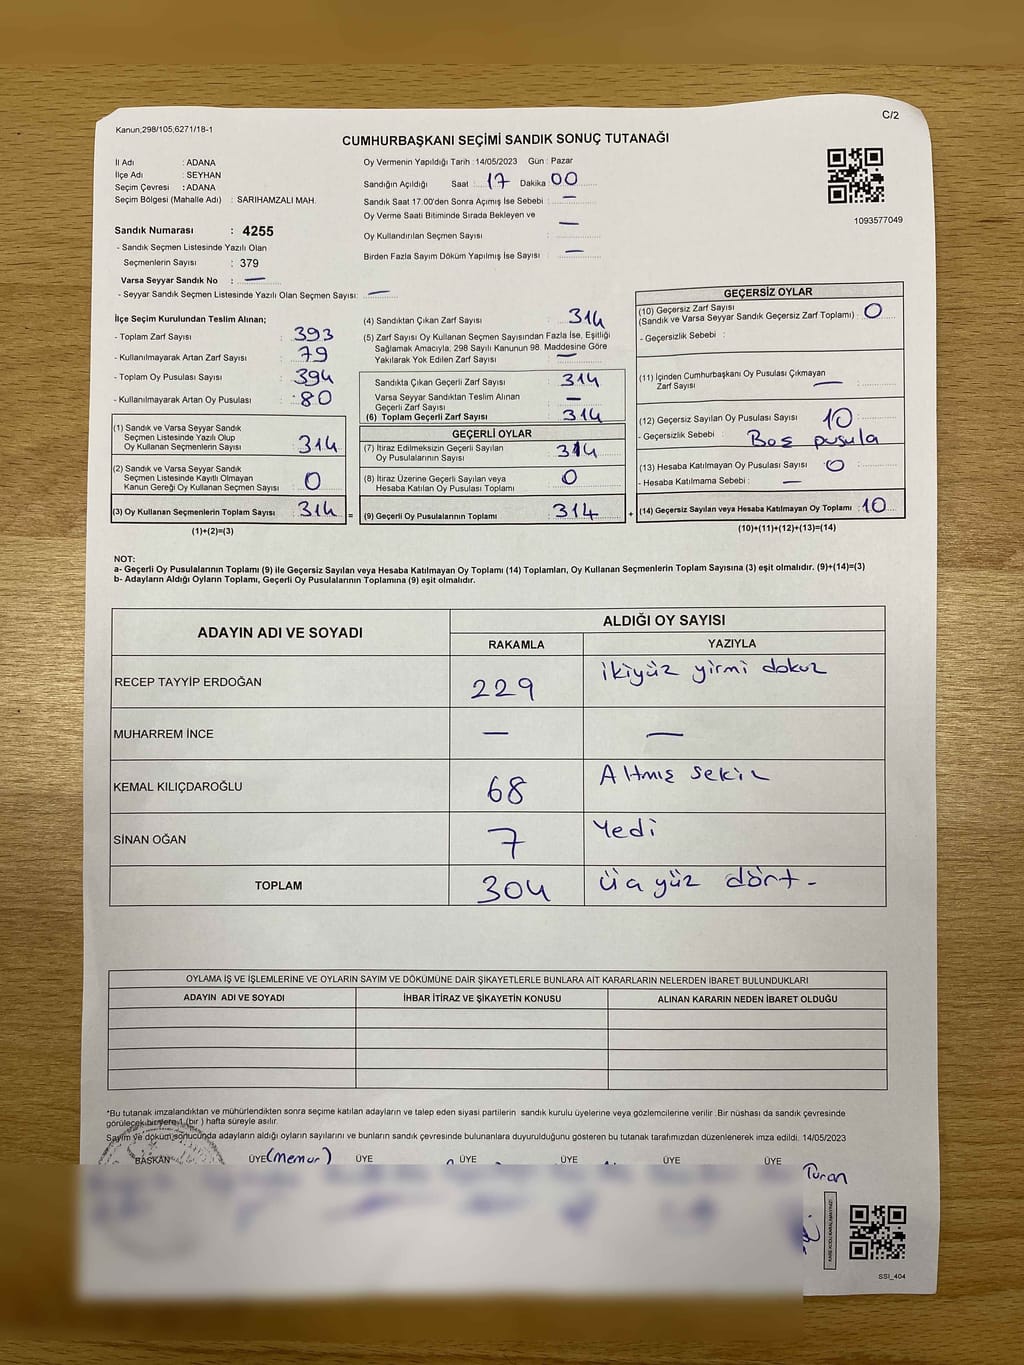 Kanun;298/105;6271/18-1
C/2
CUMHURBAŞKANI SEÇİMİ SANDIK SONUÇ TUTANAĞI
İl Adı : ADANA
İlçe Adı : SEYHAN
Seçim Çevresi : ADANA
Seçim Bölgesi (Mahalle Adı) : SARIHAMZALI MAH.
Sandık Numarası : 4255
- Sandık Seçmen Listesinde Yazılı Olan
Seçmenlerin Sayısı : 379
Varsa Seyyar Sandık No : —
- Seyyar Sandık Seçmen Listesinde Yazılı Olan Seçmen Sayısı: —
Oy Vermenin Yapıldığı Tarih : 14/05/2023 Gün : Pazar
Sandığın Açıldığı Saat : 17 Dakika 00
Sandık Saat 17.00'den Sonra Açımış İse Sebebi : —
Oy Verme Saati Bitiminde Sırada Bekleyen ve —
Oy Kullandırılan Seçmen Sayısı :
Birden Fazla Sayım Döküm Yapılmış İse Sayısı : —
1093577049
İlçe Seçim Kurulundan Teslim Alınan;
- Toplam Zarf Sayısı : 393
- Kullanılmayarak Artan Zarf Sayısı : 79
- Toplam Oy Pusulası Sayısı : 394
- Kullanılmayarak Artan Oy Pusulası : 80
(1) Sandık ve Varsa Seyyar Sandık
Seçmen Listesinde Yazılı Olup
Oy Kullanan Seçmenlerin Sayısı : 314
(2) Sandık ve Varsa Seyyar Sandık
Seçmen Listesinde Kayıtlı Olmayan
Kanun Gereği Oy Kullanan Seçmen Sayısı : 0
(3) Oy Kullanan Seçmenlerin Toplam Sayısı : 314 =
(1)+(2)=(3)
(4) Sandıktan Çıkan Zarf Sayısı : 314
(5) Zarf Sayısı Oy Kullanan Seçmen Sayısından Fazla İse, Eşitliği
Sağlamak Amacıyla, 298 Sayılı Kanunun 98. Maddesine Göre
Yakılarak Yok Edilen Zarf Sayısı : —
Sandıkta Çıkan Geçerli Zarf Sayısı : 314
Varsa Seyyar Sandıktan Teslim Alınan
Geçerli Zarf Sayısı : —
(6) Toplam Geçerli Zarf Sayısı : 314
GEÇERLİ OYLAR
(7) İtiraz Edilmeksizin Geçerli Sayılan
Oy Pusulalarının Sayısı : 314
(8) İtiraz Üzerine Geçerli Sayılan veya
Hesaba Katılan Oy Pusulası Toplamı : 0
(9) Geçerli Oy Pusulalarının Toplamı : 314 +
GEÇERSİZ OYLAR
(10) Geçersiz Zarf Sayısı
(Sandık ve Varsa Seyyar Sandık Geçersiz Zarf Toplamı) : 0
- Geçersizlik Sebebi :
(11) İçinden Cumhurbaşkanı Oy Pusulası Çıkmayan
Zarf Sayısı : —
(12) Geçersiz Sayılan Oy Pusulası Sayısı : 10
- Geçersizlik Sebebi : Boş pusula
(13) Hesaba Katılmayan Oy Pusulası Sayısı : 0
- Hesaba Katılmama Sebebi : —
(14) Geçersiz Sayılan veya Hesaba Katılmayan Oy Toplamı : 10
(10)+(11)+(12)+(13)=(14)
NOT:
a- Geçerli Oy Pusulalarının Toplamı (9) ile Geçersiz Sayılan veya Hesaba Katılmayan Oy Toplamı (14) Toplamları, Oy Kullanan Seçmenlerin Toplam Sayısına (3) eşit olmalıdır. (9)+(14)=(3)
b- Adayların Aldığı Oyların Toplamı, Geçerli Oy Pusulalarının Toplamına (9) eşit olmalıdır.
ADAYIN ADI VE SOYADI
ALDIĞI OY SAYISI
RAKAMLA YAZIYLA
RECEP TAYYİP ERDOĞAN 229 ikiyüz yirmi dokuz
MUHARREM İNCE — —
KEMAL KILIÇDAROĞLU 68 Altmış sekiz
SİNAN OĞAN 7 Yedi
TOPLAM 304 üç yüz dört -
OYLAMA İŞ VE İŞLEMLERİNE VE OYLARIN SAYIM VE DÖKÜMÜNE DAİR ŞİKAYETLERLE BUNLARA AİT KARARLARIN NELERDEN İBARET BULUNDUKLARI
ADAYIN ADI VE SOYADI İHBAR İTİRAZ VE ŞİKAYETİN KONUSU ALINAN KARARIN NEDEN İBARET OLDUĞU
*Bu tutanak imzalandıktan ve mühürlendikten sonra seçime katılan adayların ve talep eden siyasi partilerin sandık kurulu üyelerine veya gözlemcilerine verilir. Bir nüshası da sandık çevresinde
görülecek bir yere 1 (bir ) hafta süreyle asılır.
Sayım ve döküm sonucunda adayların aldığı oyların sayılarını ve bunların sandık çevresinde bulunanlara duyurulduğunu gösteren bu tutanak tarafımızdan düzenlenerek imza edildi. 14/05/2023
BAŞKAN ÜYE (memur) ÜYE ÜYE ÜYE ÜYE ÜYE
Turan
SSİ_404